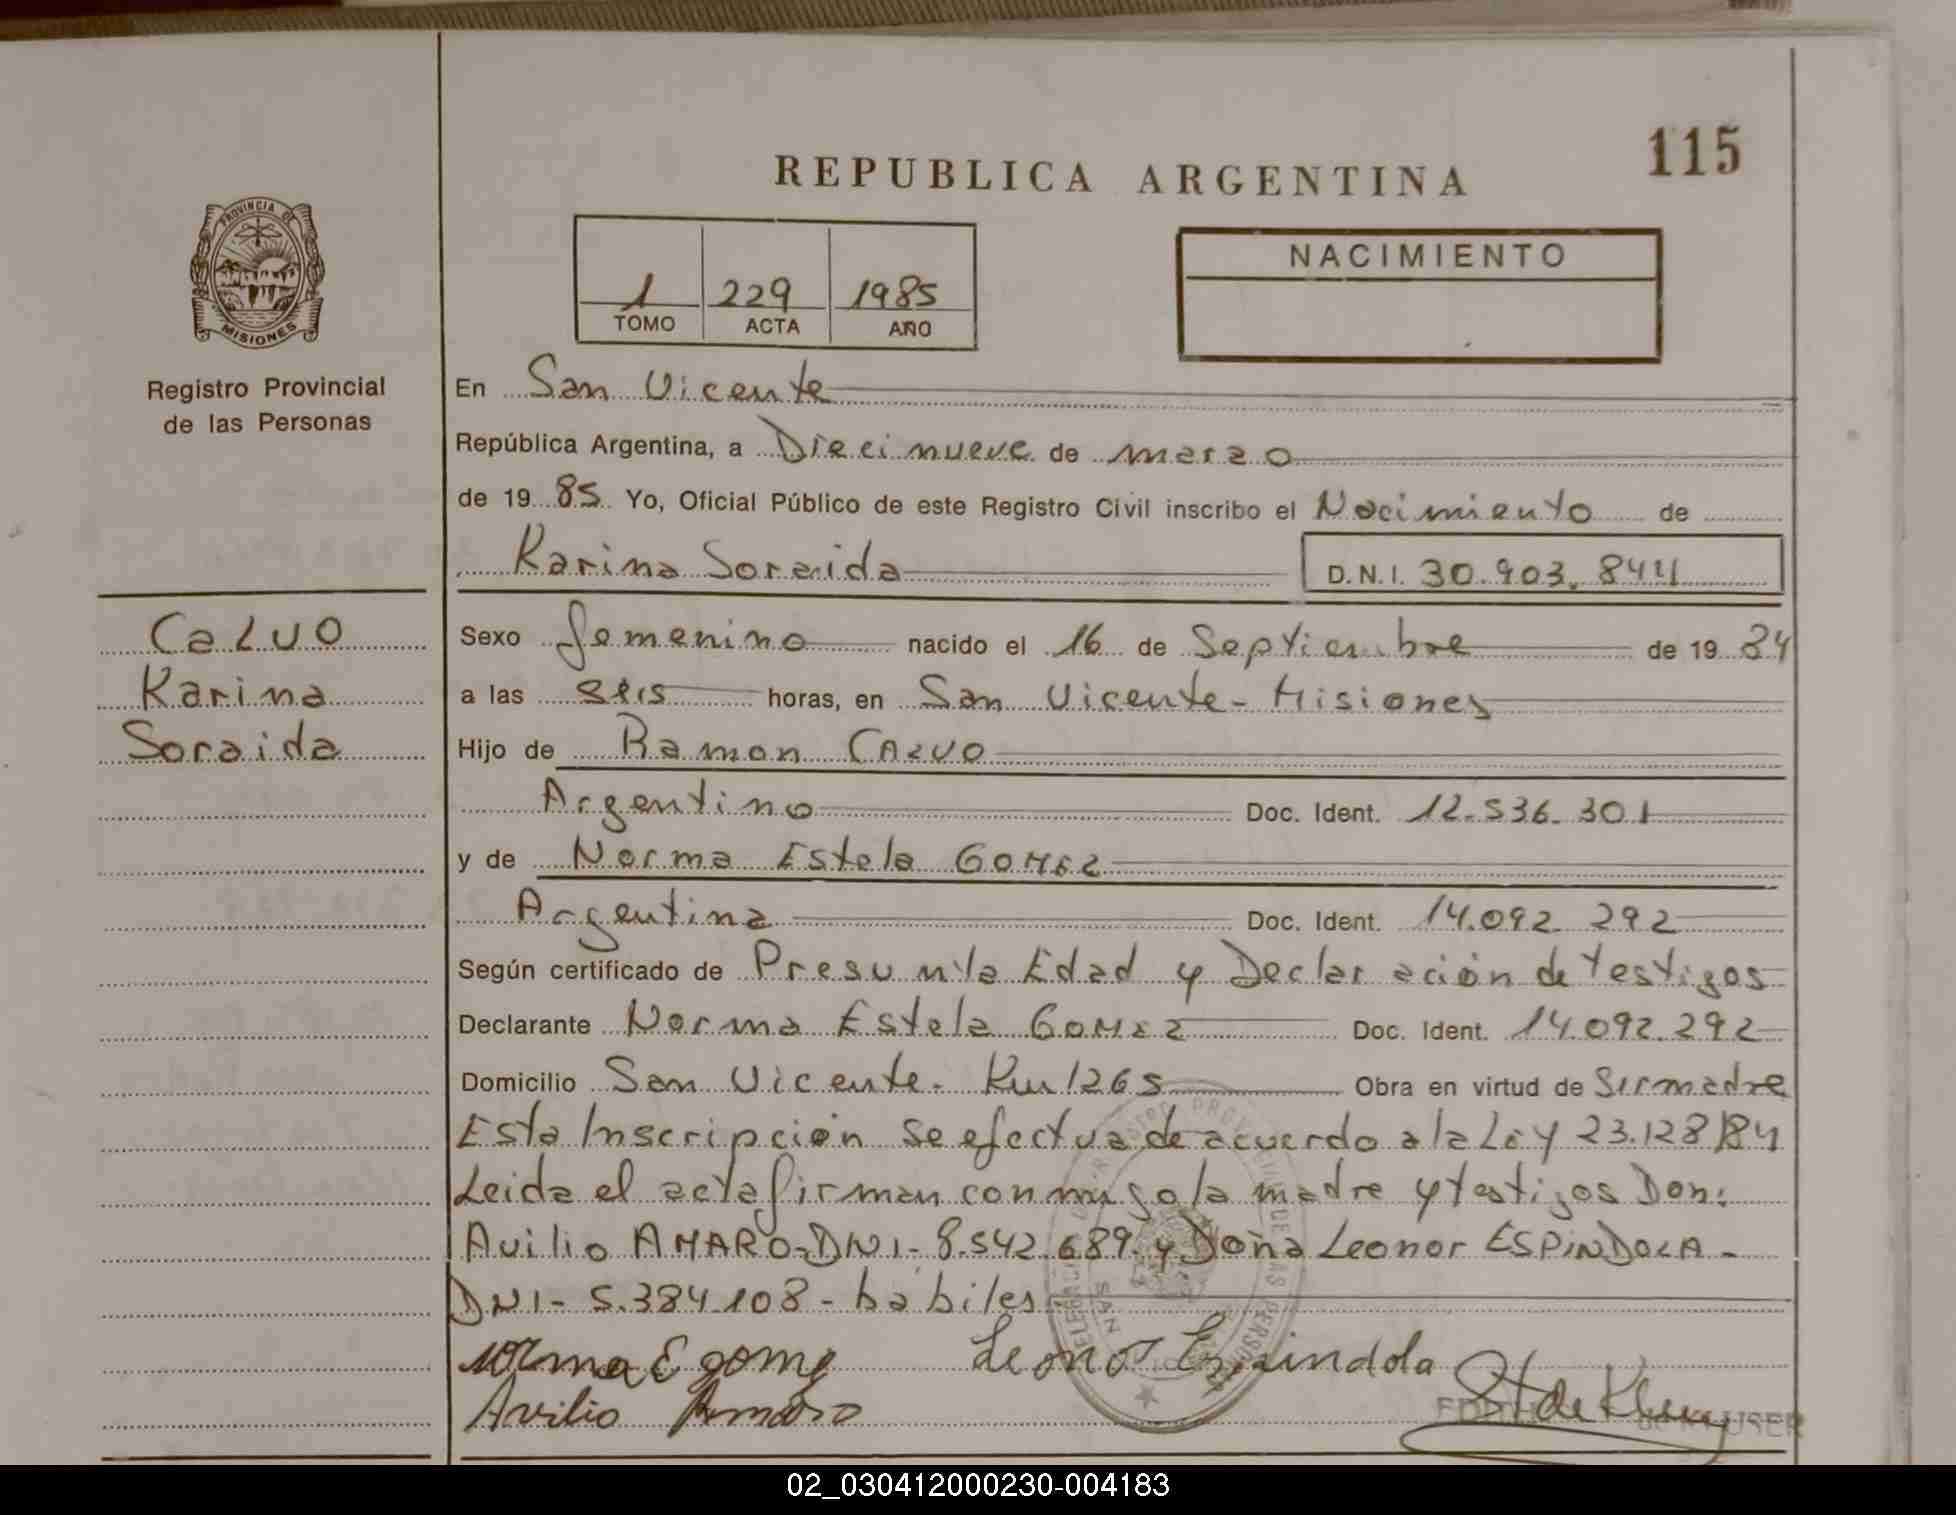 115
REPUBLICA ARGENTINA
PROVINCIA DE
MISIONES
Registro Provincial
de las Personas
1 229 1985
TOMO ACTA AÑO
NACIMIENTO
En San Vicente
República Argentina, a Diecinueve de marzo
de 19 85 Yo, Oficial Público de este Registro Civil inscribo el Nacimiento de
Karina Soraida D.N.I. 30.903.844
CALVO
Karina
Soraida
Sexo femenino nacido el 16 de Septiembre de 19 84
a las seis horas, en San Vicente - Misiones
Hijo de Ramon CALVO
Argentino Doc. Ident. 12.536.301
y de Norma Estela GOMEZ
Argentina Doc. Ident. 14.092.292
Según certificado de Presunta Edad y Declaración de testigos
Declarante Norma Estela GOMEZ Doc. Ident. 14.092.292
Domicilio San Vicente. Km 1265 Obra en virtud de Ser madre
Esta Inscripción se efectua de acuerdo a la Ley 23.128/84
Leida el acta firman conmigo la madre y testigos Don:
Avilio AMARO-DNI-8.542.689 y Doña Leonor ESPINDOLA-
DNI-5.384.108-habiles
Norma E gomez Leonor Espindola
Avilio Amaro
02_030412000230-004183